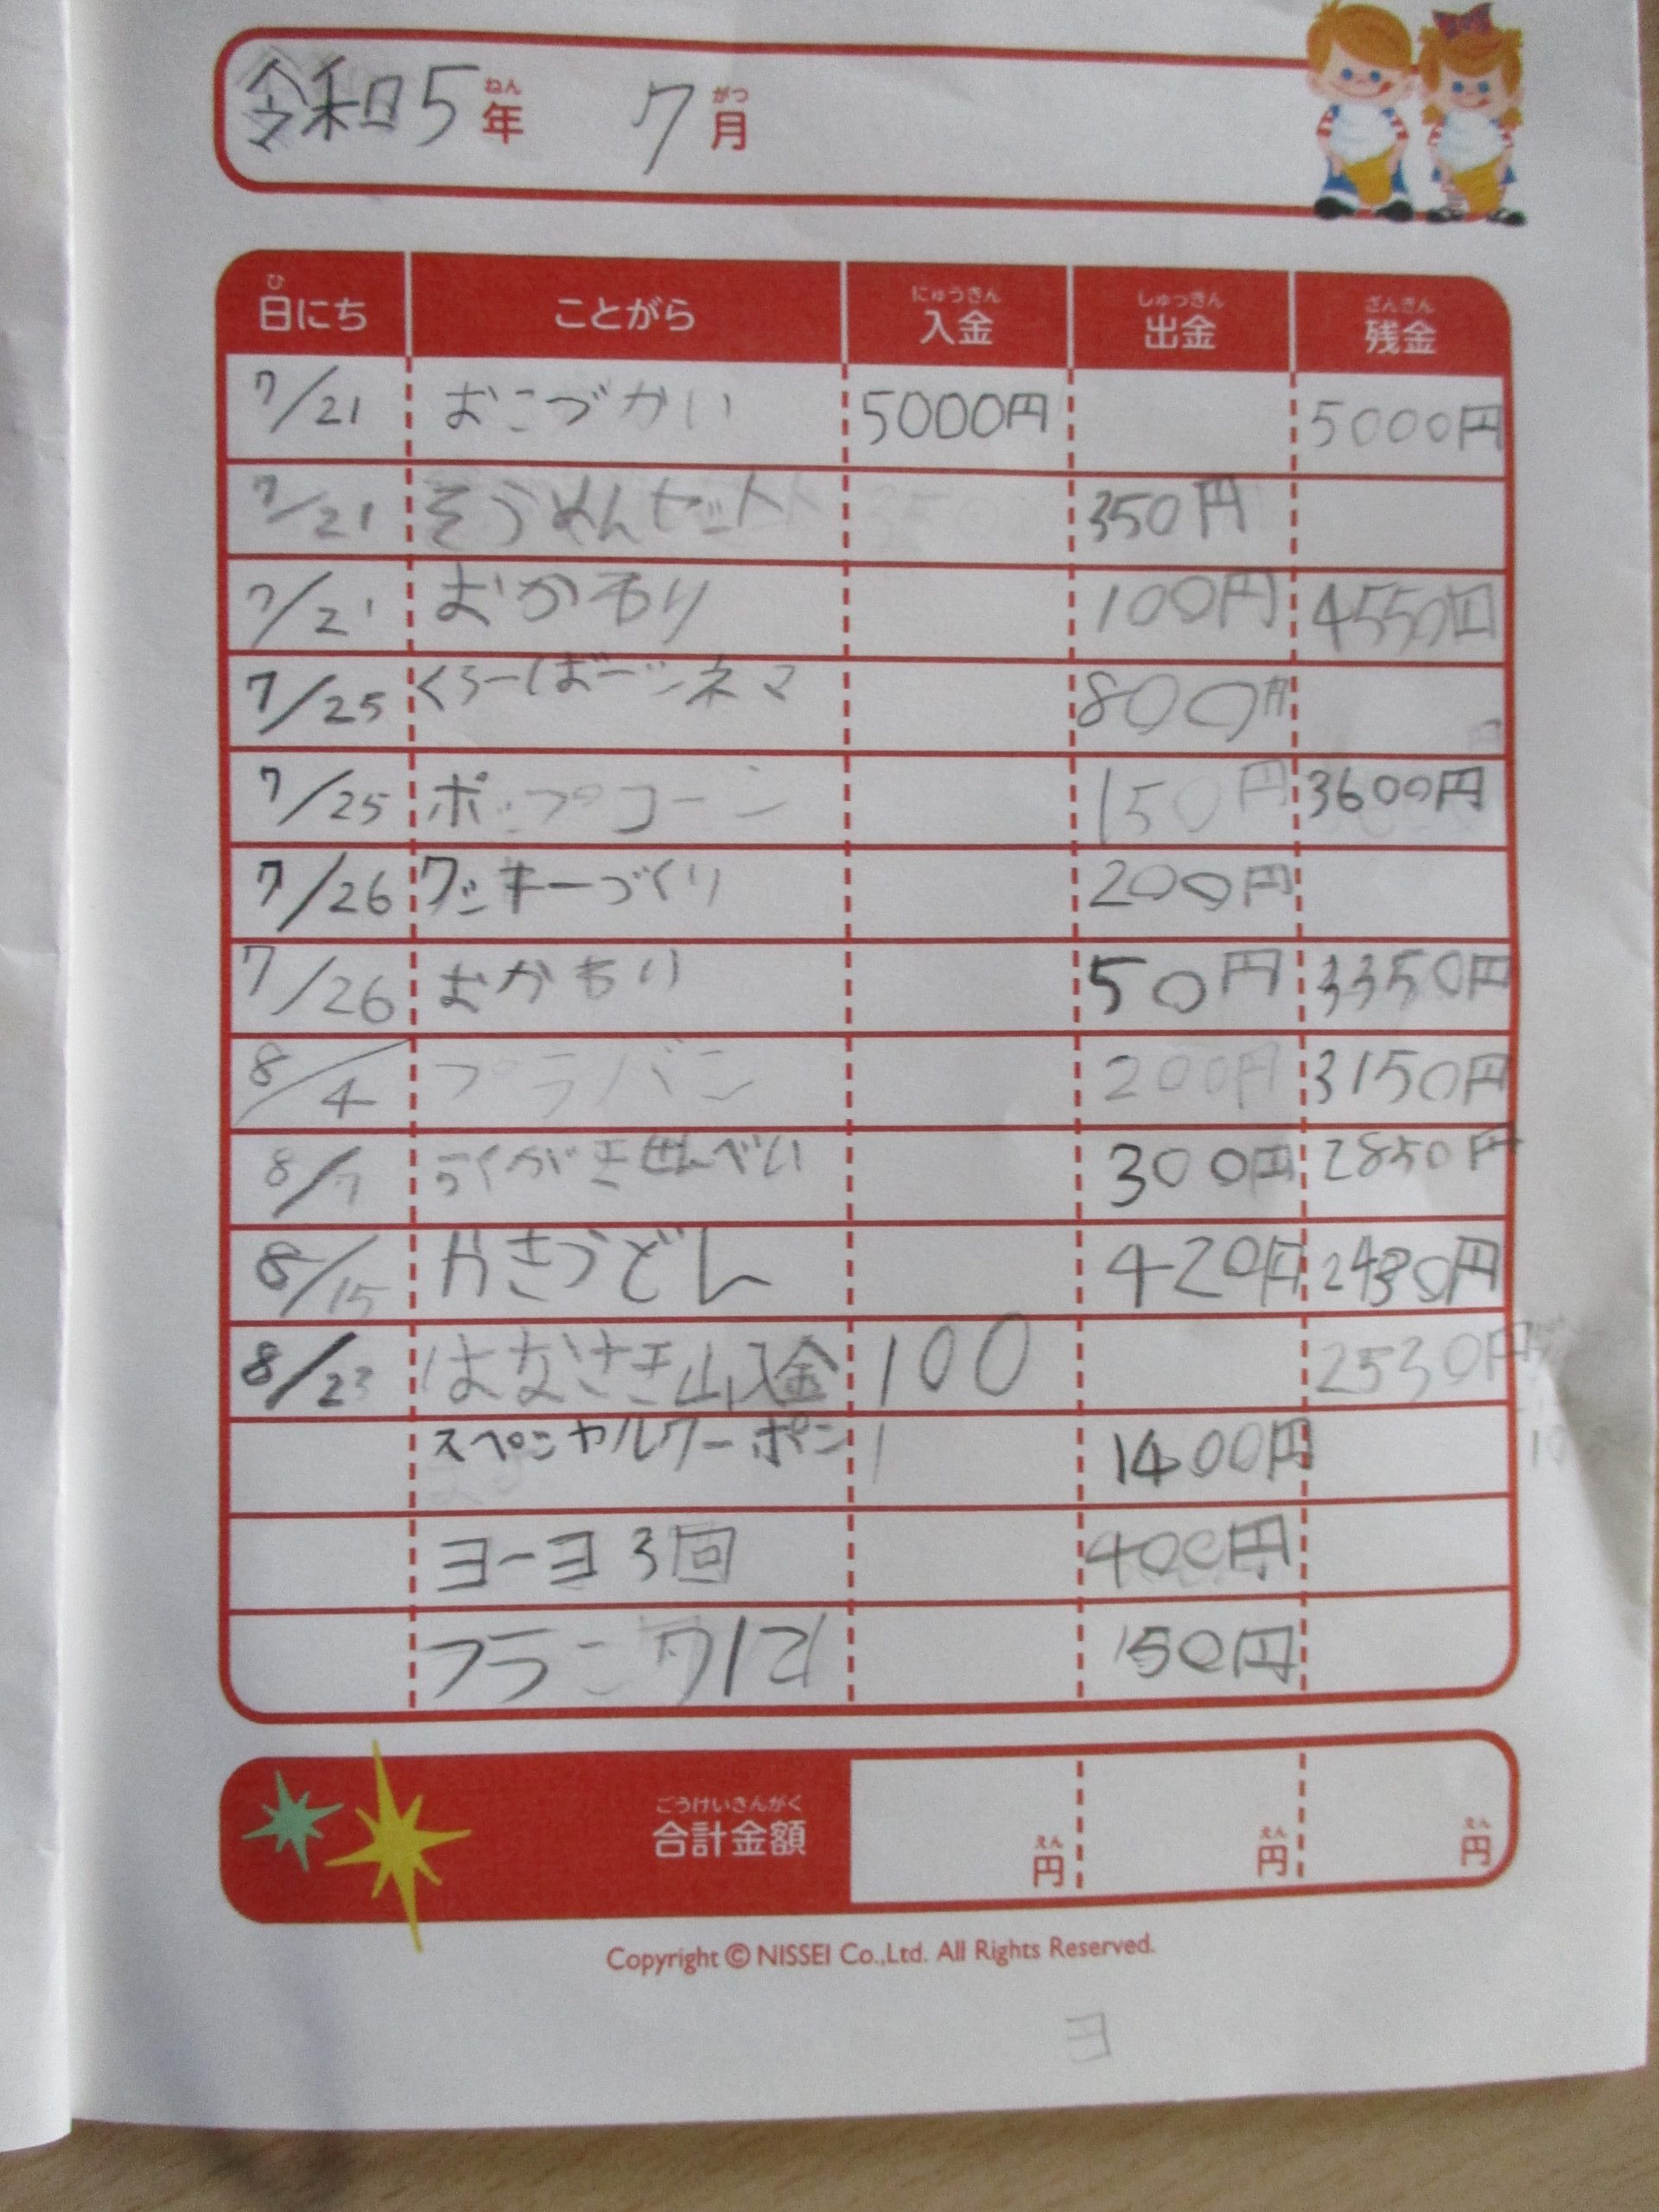 令和5年 7月
ねん がつ
日にち ことがら 入金 出金 残金
ひ にゅうきん しゅっきん ざんきん
7/21 おこづかい 5000円 5000円
7/21 そうめんセット 350円
7/21 おかわり 100円 4550円
7/25 くろーばーシネマ 800円
7/25 ポップコーン 150円 3600円
7/26 クッキーづくり 200円
7/26 おかわり 50円 3350円
8/4 プラバン 200円 3150円
8/7 らくがきせんべい 300円 2850円
8/15 かきうどん 420円 2430円
8/23 はなさき山入金 100 2530円
スペシャルクーポン 1400円
ヨーヨ3回 400円
フランク1 150円
ごうけいきんがく
合計金額 円 円 円
えん えん えん
Copyright © NISSEI Co.,Ltd. All Rights Reserved.
ヨ